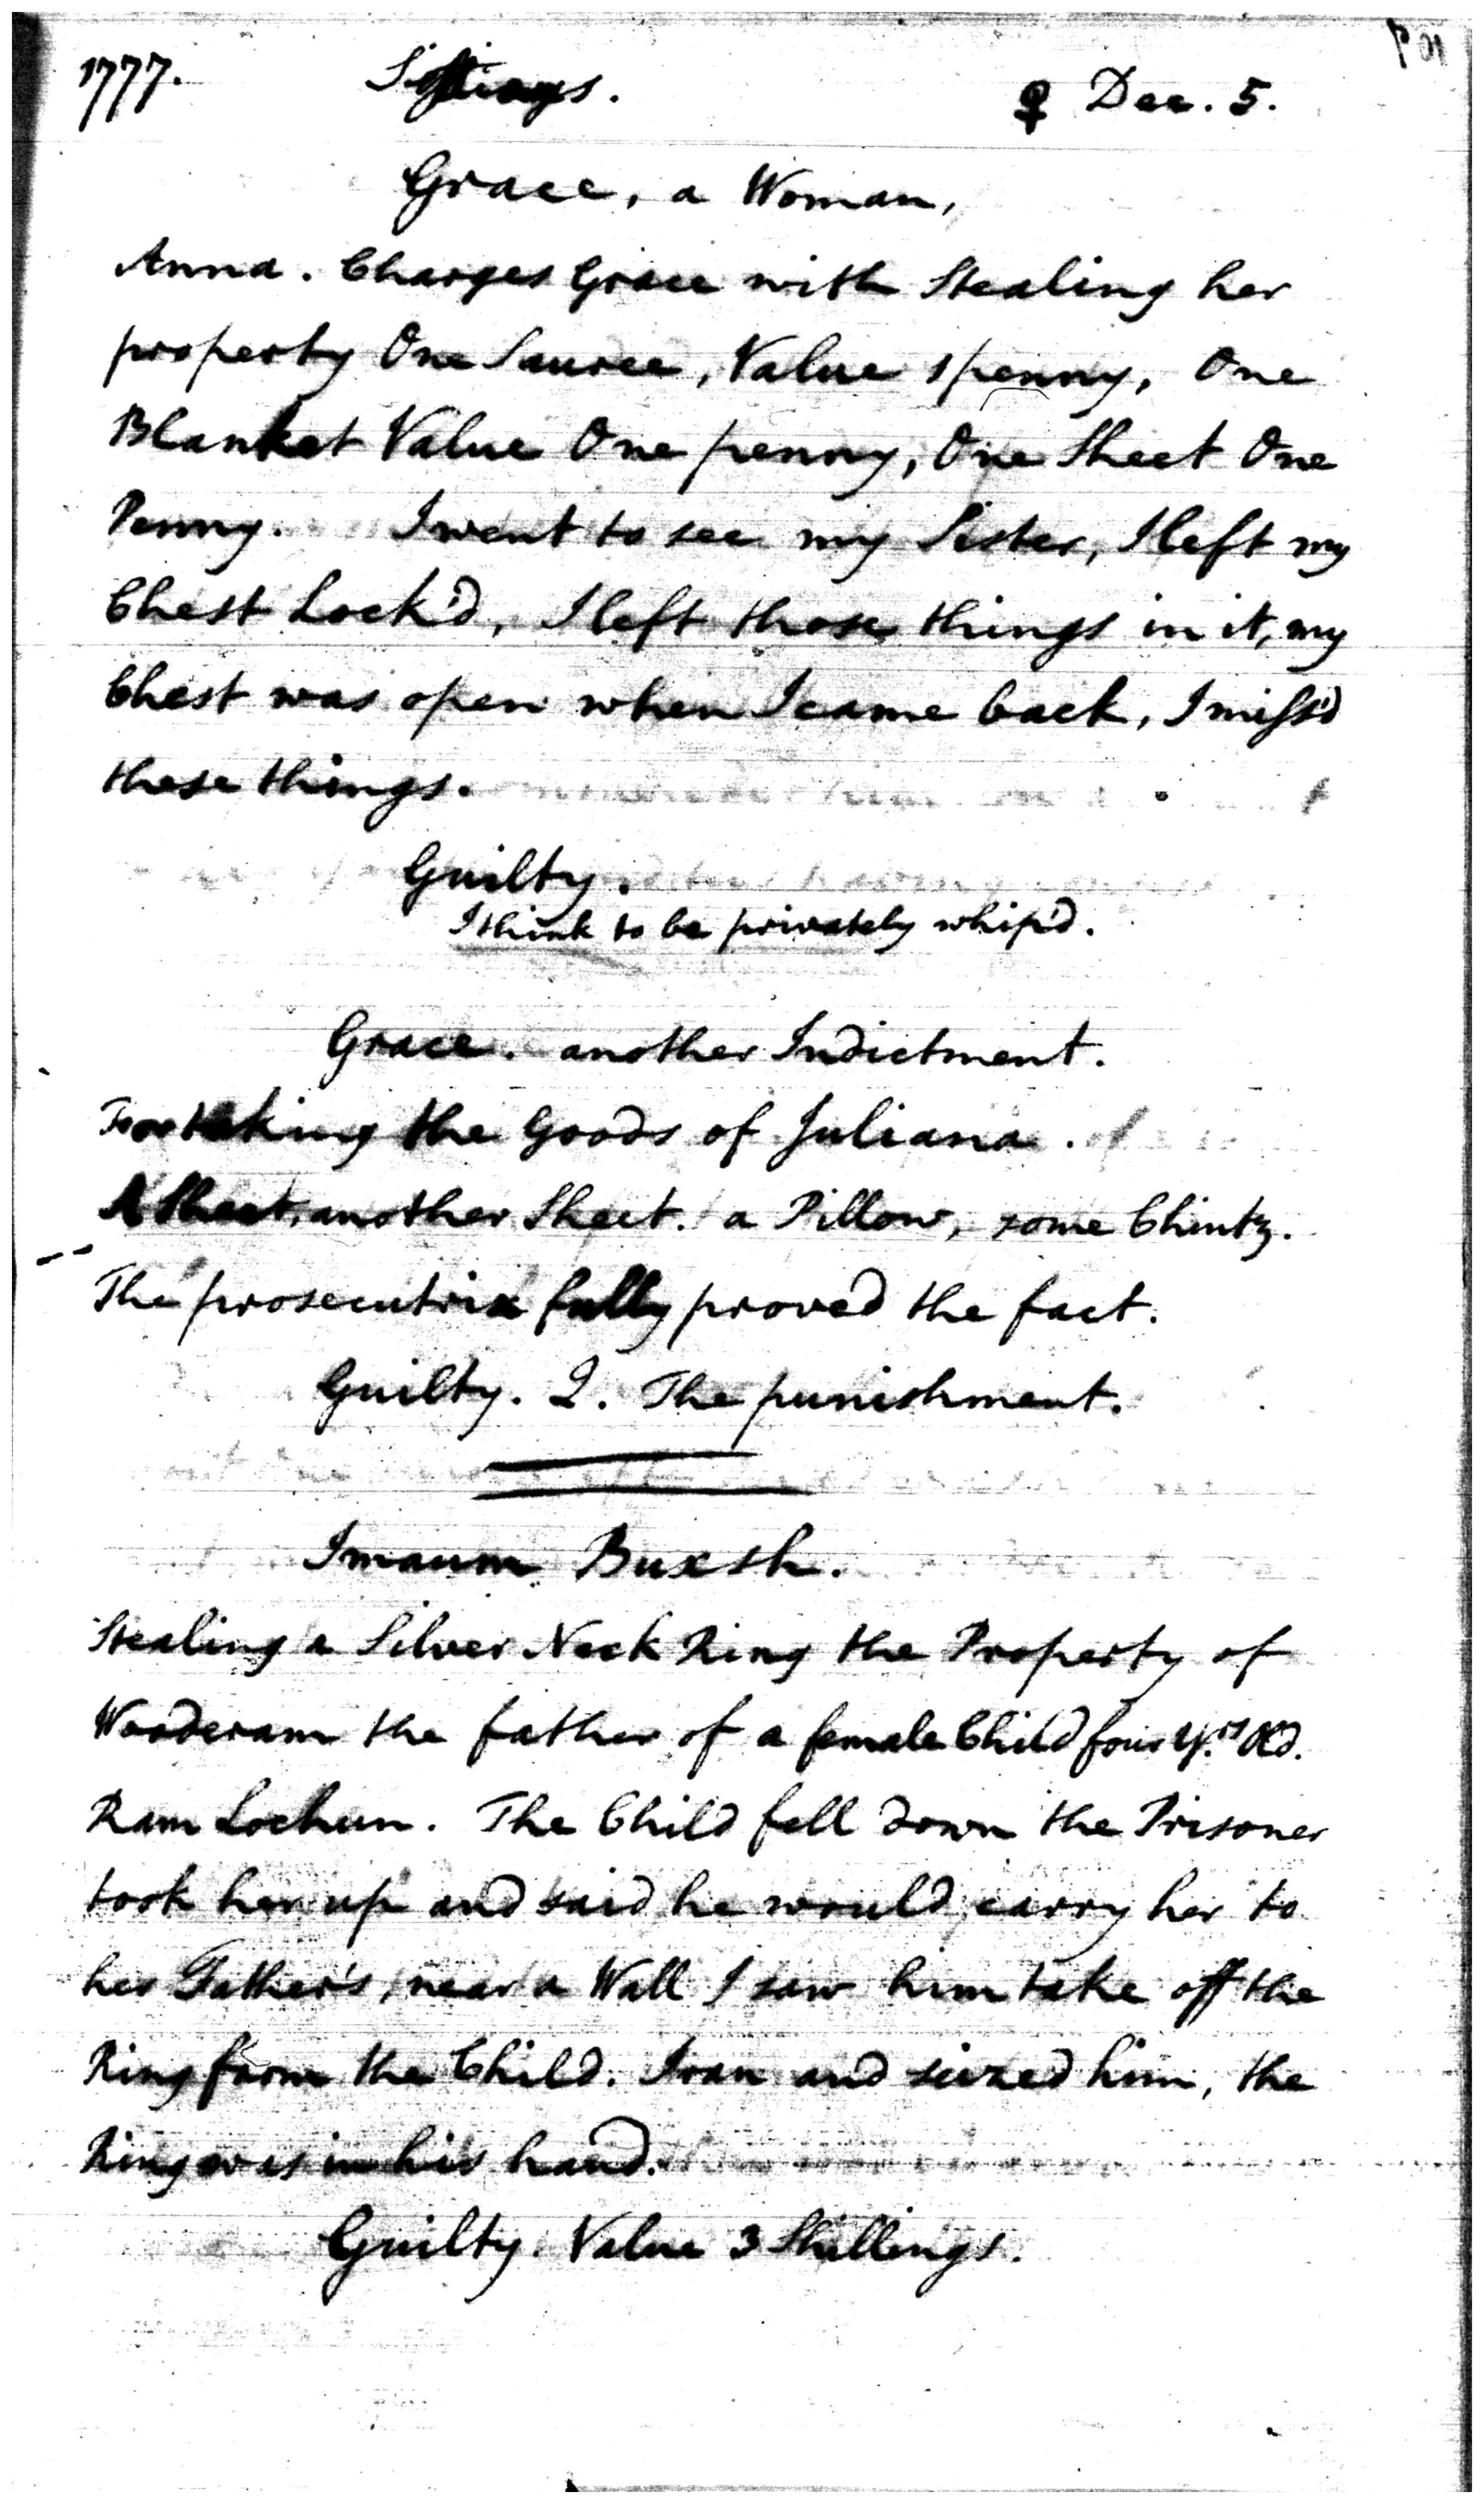 1777. Sittings. ♀ Dec. 5.
Grace, a Woman,
Anna. Charges Grace with Stealing her
property One Saucee, Value 1 penny, One
Blanket Value One penny, One Sheet One
Penny. I went to see my Sister, I left my
Chest Lock'd, I left those things in it, my
Chest was open when I came back, I miss'd
these things.
Guilty.
I think to be privately whip'd.
Grace. another Indictment.
For taking the Goods of Juliana.
A Sheet, another Sheet. a Pillow, some Chintz.
The prosecutrix fully proved the fact.
Guilty. Q. The punishment.
Imaum Buxsh.
Stealing a Silver Neck Ring the Property of
the father of a female Child four Y.rs Old.
Ram Lochun. The Child fell down the Prisoner
took her up and said he would carry her to
her Father's, near a Wall I saw him take off the
Ring form the Child. I ran and seized him, the
Ring was in his hand.
Guilty. Value 3 Shillings.